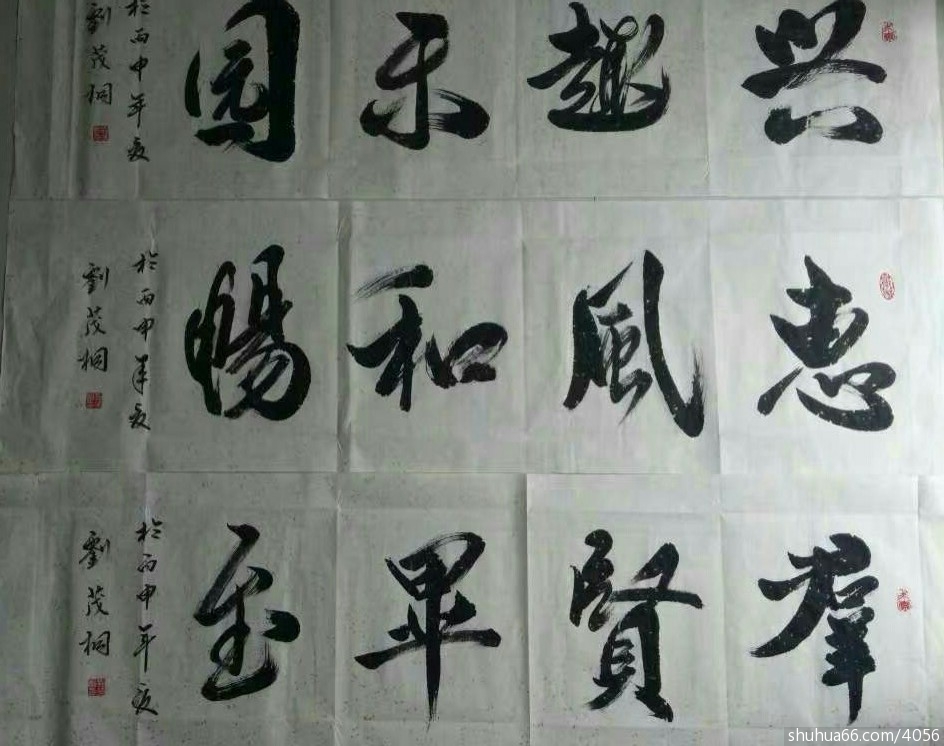 兴趣乐园
於丙申年夏
劉茂桐
惠風和暢
於丙申年夏
劉茂桐
羣賢畢至
於丙申年夏
劉茂桐
shuhua66.com/4056